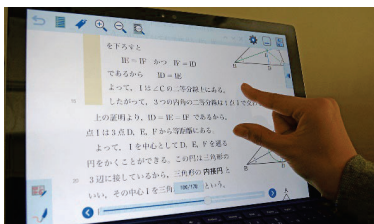 を下ろすと
IE=IF かつ IF=ID
であるから ID=IE
よって，Iは∠Cの二等分線上にある。
したがって，3つの内角の二等分線は1点で交わ
上の証明より，ID=IE=IFであるから，
点Iは3点D，E，Fから等距離にある。
よって，Iを中心としてD，E，Fを通る
円をかくことができる。この円は三角形の
3辺に接しているから，三角形の内接円と
いい，その中心Iを三角
という。